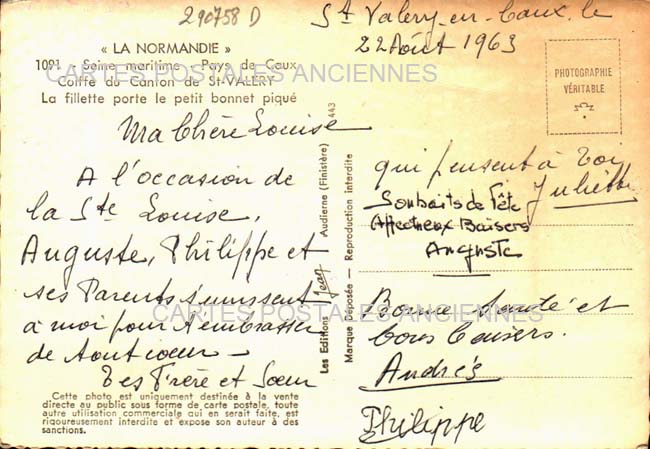 290758 D
St Valery-en-Caux, le
22 Août 1963
« LA NORMANDIE »
1091 - Seine maritime - Pays de Caux
Coiffe du Canton de St-VALÉRY
La fillette porte le petit bonnet piqué
CARTES POSTALES ANCIENNES
PHOTOGRAPHIE
VÉRITABLE
Ma Chère Louise
A l'occasion de
la Ste Louise,
Auguste, Philippe et
ses Parents s'unissent
à moi pour t'embrasser
de tout coeur -
Tes Frère et Soeur
Cette photo est uniquement destinée à la vente
directe au public sous forme de carte postale, toute
autre utilisation commerciale qui en serait faite, est
rigoureusement interdite et expose son auteur à des
sanctions.
Les Editions Jean Audierne (Finistère) 443
Marque Déposée — Reproduction interdite
qui pensent à toi
Juliette
Souhaits de Fête
Affectueux Baisers
Auguste
CARTES POSTALES ANCIENNES
Bonne Santé et
bons baisers.
Andrés
Philippe